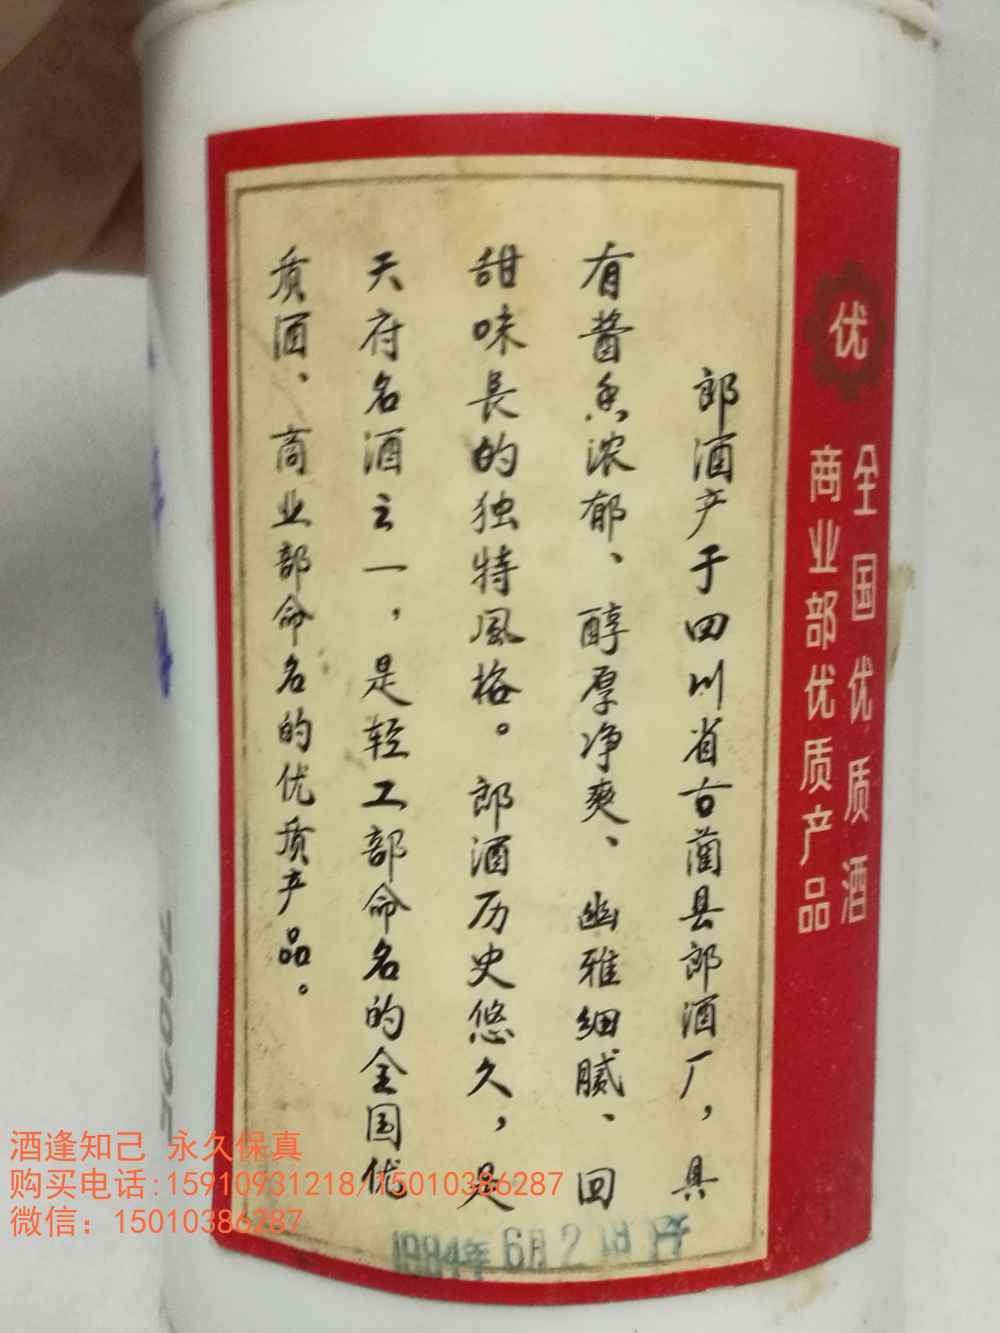 优
全国优质酒
商业部优质产品
郎酒产于四川省古蔺县郎酒厂，具
有酱香浓郁、醇厚净爽、幽雅细腻、回
甜味長的独特風格。郎酒历史悠久，是
天府名酒之一，是轻工部命名的全国优
质酒、商业部命名的优质产品。
1984年6月2
酒逢知己 永久保真
购买电话:15910931218/15010386287
微信：15010386287